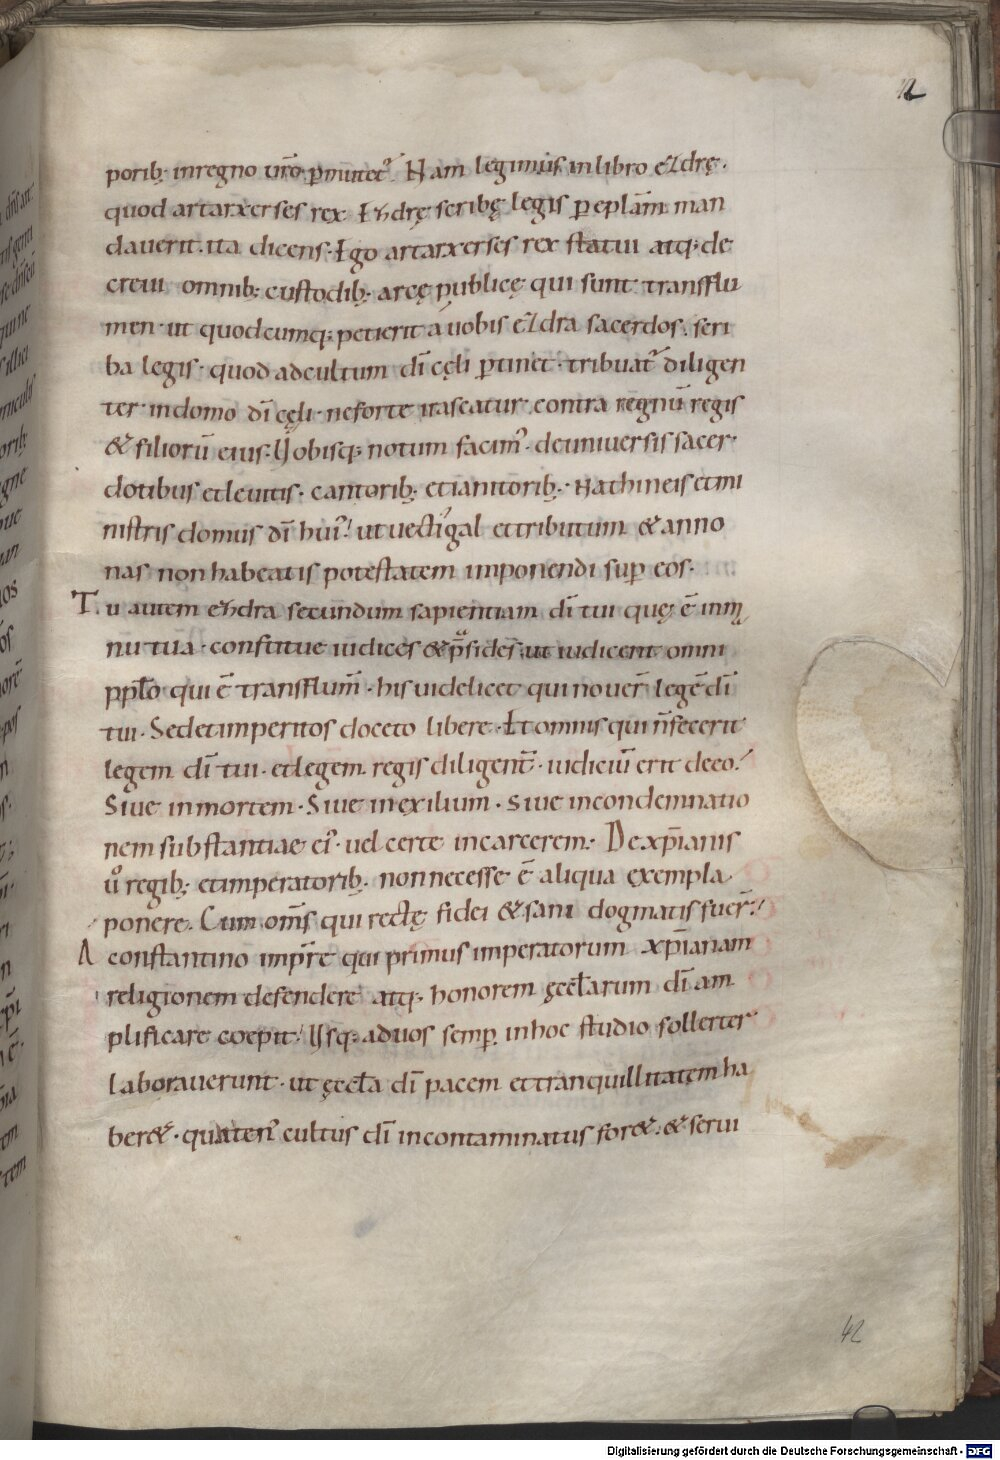 12
porib; inregno ur̄o p̱mittet᷒. Nam legimus inlibro ezdrę.
quod artarxerses rex Ezdrę scribę legis p̱ epl̄am man
dauerit. ita dicens. Ego artarxerses rex statui atq; de
creui omnib; custodib; arcę publicę qui sunt transflu
men. ut quodcumq; petierit a uobis ezdra sacerdos. scri
ba legis. quod adcultum dī cęli ꝑtinet. tribuat᷒ diligen
ter indomo dī cęli. neforte irascatur contra regnū regis
& filiorū eius. Vobisq; notum facim᷒. deuniuersis sacer
dotibus etleuitis. cantorib; etianitorib;. Nathineis etmi
nistris domus dī hui᷒. ut uectigal ettributum & anno
nas non habeatis potestatem imponendi suꝑ eos.
Tu autem ezdra secundum sapientiam dī tui quę ē inm
nu tua. constitue iudices & p̄sides. ut iudicent omni
pplo qui ē transflum̄. his uidelicet qui nouer̄ legē dī
tui. Sedetimperitos doceto libere. Et omnis qui n̄ fecerit
legem dī tui. etlegem regis diligent̄. iudiciū erit deeo.
Siue inmortem. Siue inexilium. siue incondemnatio
nem substantiae ei᷒. uel certe incarcerem. De xp̄ianis
ů regib; etimperatorib; nonnecesse ē aliqua exempla
ponere. Cum om̄s qui rectę fidei & sani dogmatis fuer̄.
A constantino imp̄re qui primus imperatorum xp̄ianam
religionem defendere atq; honorem ęccl̄arum dī am
plificare coepit. Vsq; aduos semꝑ inhoc studio sollerter
laborauerunt. ut ęccl̄a dī pacem ettranquillitatem ha
ber&. quaten᷒ cultus dī incontaminatus for&. & serui
42
Digitalisierung gefördert durch die Deutsche Forschungsgemeinschaft - DFG